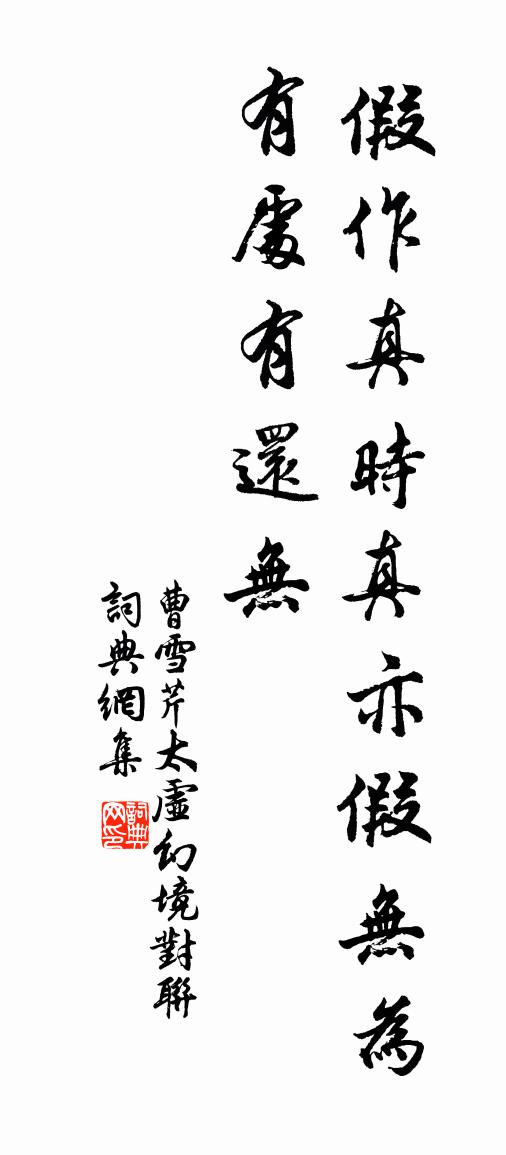 假作真時真亦假無為
有處有還無
曹雪芹太虛幻境對聯
詞典網集
詞典
网印